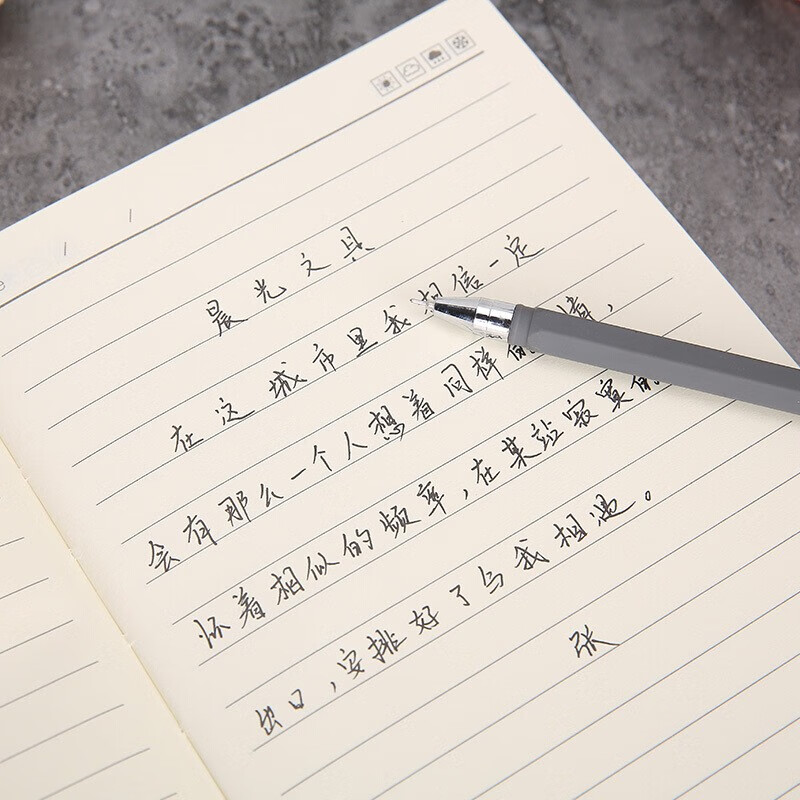 晨光文具
在这城市里我相信一定
会有那么一个人想着同样的 情，
怀着相似的频率，在某站寂寞的
出口，安排好了与我相遇。
张